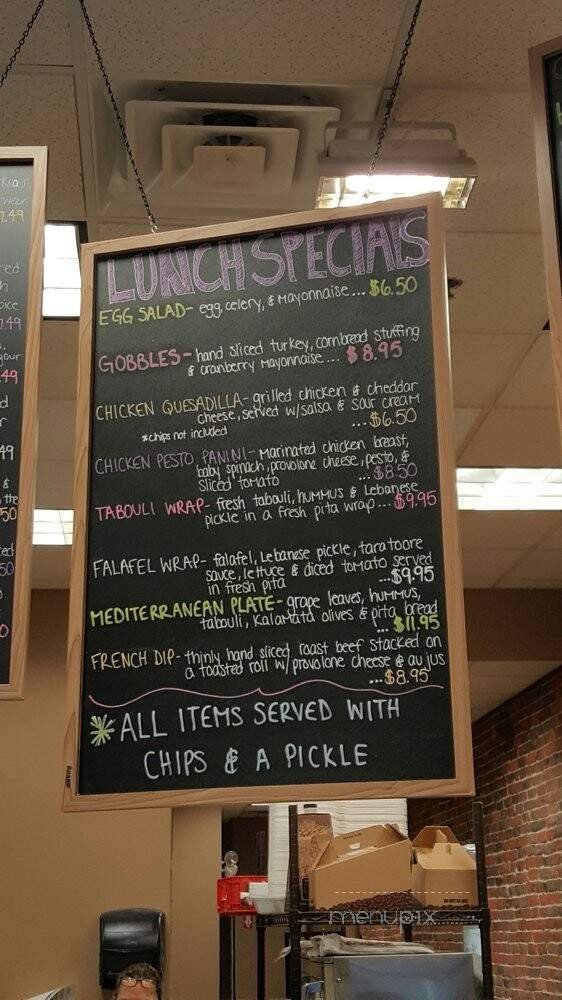 LUNCH SPECIALS
EGG SALAD- egg, celery, & mayonnaise... $6.50
GOBBLES- hand sliced turkey, cornbread stuffing
& cranberry mayonnaise... $8.95
CHICKEN QUESADILLA- grilled chicken & cheddar
cheese, served w/salsa & sour cream
*chips not included ...$6.50
CHICKEN PESTO PANINI- Marinated chicken breast,
baby spinach, provolone cheese, pesto, &
sliced tomato ...$8.50
TABOULI WRAP- fresh tabouli, hummus & Lebanese
pickle in a fresh pita wrap... $9.95
FALAFEL WRAP- falafel, Lebanese pickle, taratoore
sauce, lettuce & diced tomato served
in fresh pita ...$9.95
MEDITERRANEAN PLATE- grape leaves, hummus,
tabouli, Kalamata olives & pita bread
... $11.95
FRENCH DIP- thinly hand sliced roast beef stacked on
a toasted roll w/ provolone cheese & au jus
...$8.95
*ALL ITEMS SERVED WITH
CHIPS & A PICKLE
7.49
7.49
.49
49
&
the
50
50
0
menupix